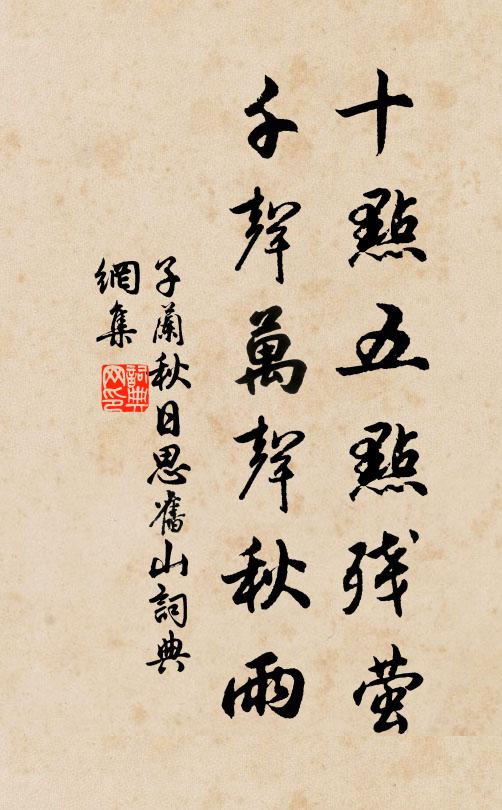 十點五點残螢
千聲萬聲秋雨
子蘭秋日思舊山詞典
網集
詞典
网印